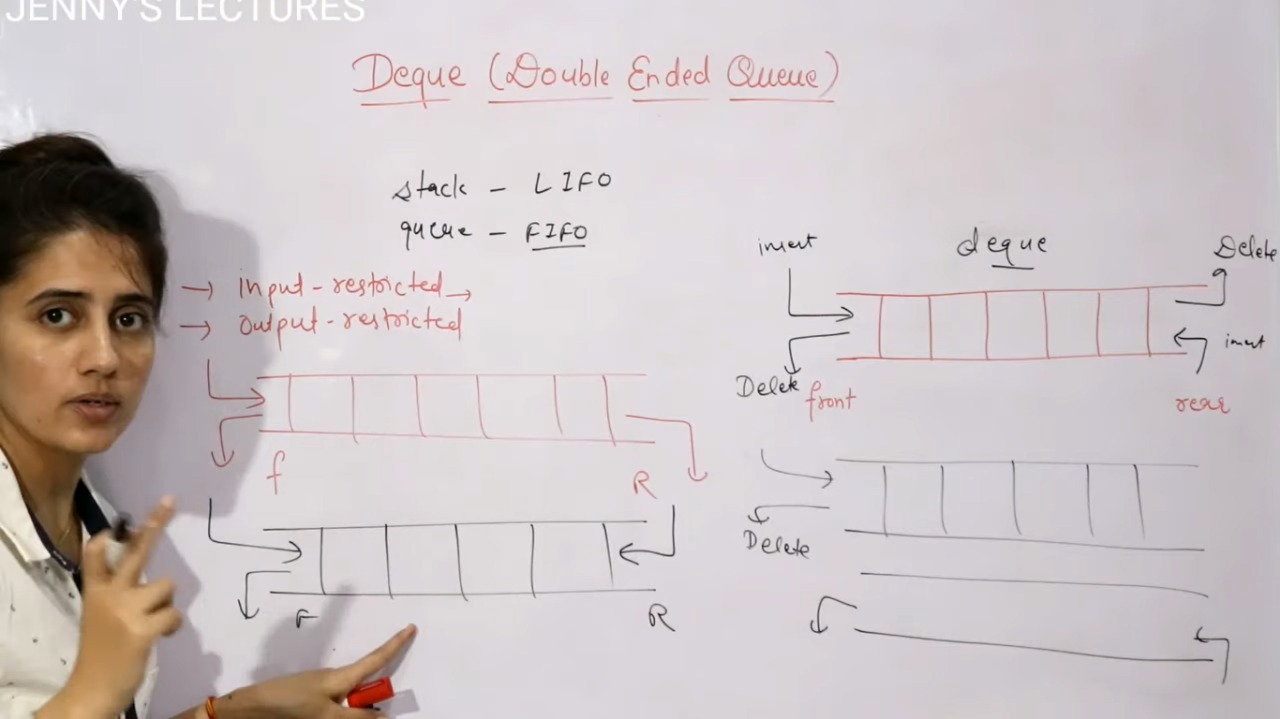 JENNY'S LECTURES
Deque (Double Ended Queue)
stack - LIFO
queue - FIFO
→ Input-restricted →
→ Output-restricted
f R
F R
deque
insert Delete
Delete insert
front rear
Delete